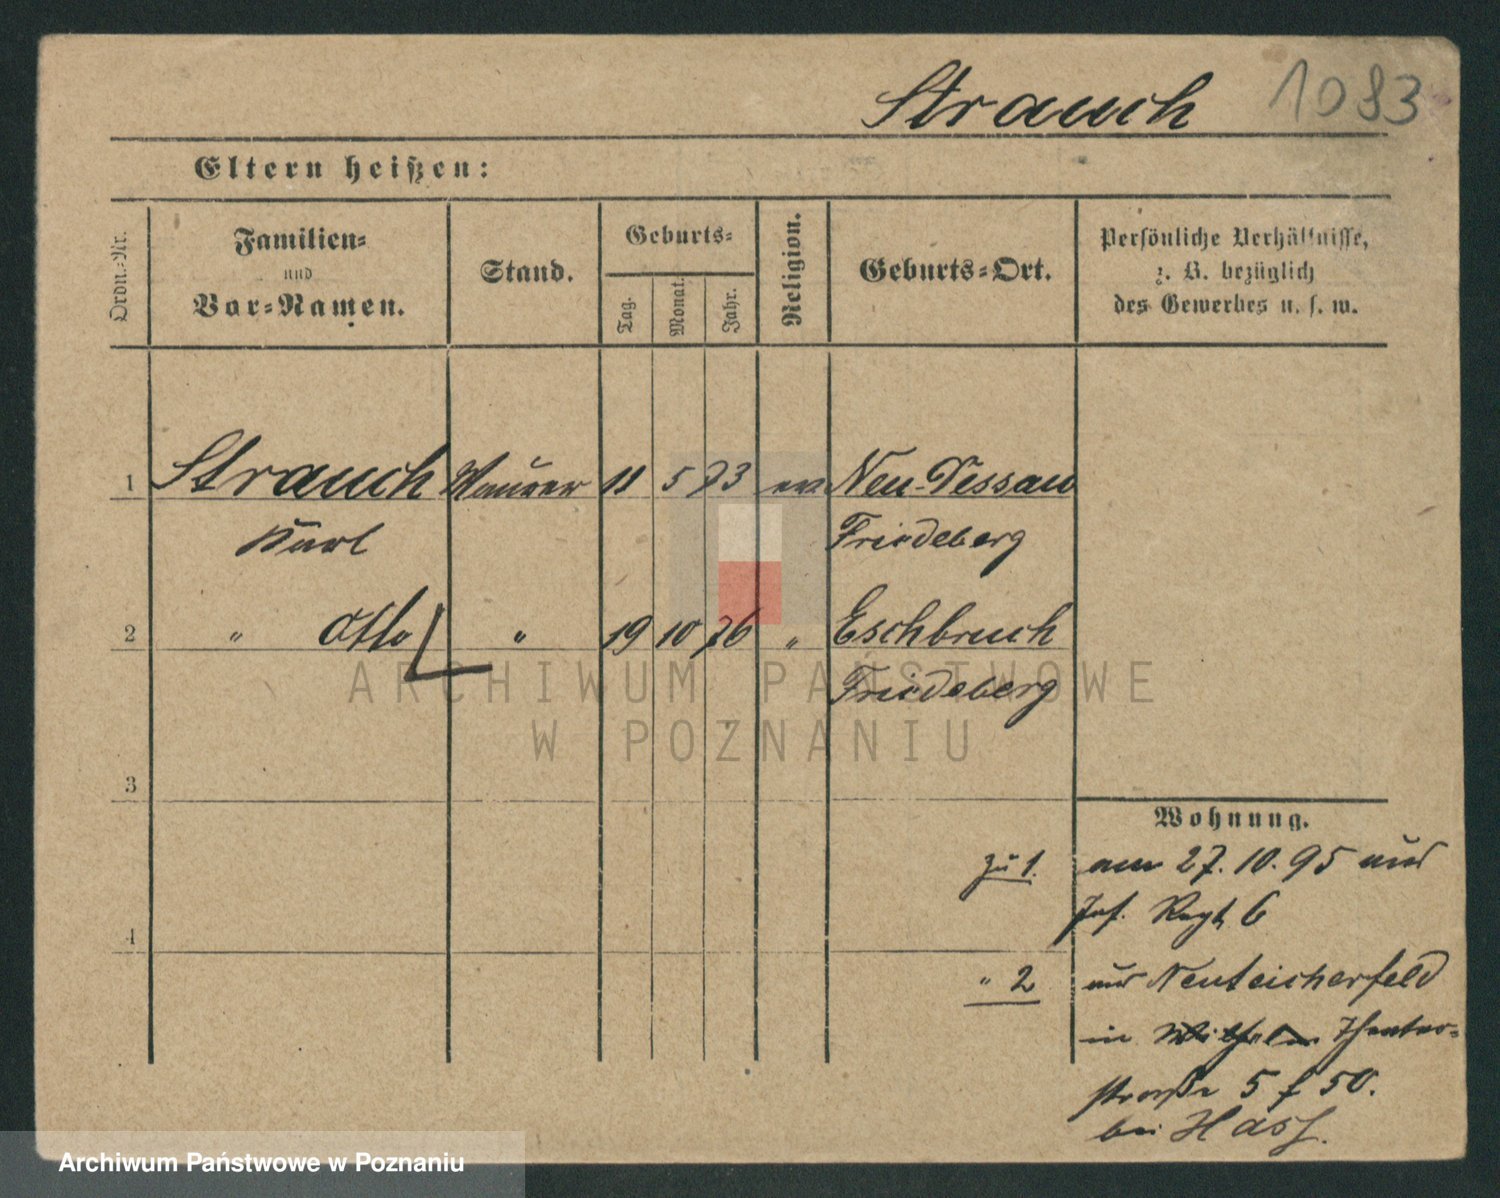 Strauch 1083
Eltern heißen:
Ordn.-Nr.
Familien-
und
Vor-Namen.
Stand.
Geburts-
Tag.
Monat.
Jahr.
Religion.
Geburts-Ort.
Persönliche Verhältnisse,
z. B. bezüglich
des Gewerbes u. s. w.
1 Strauch Maurer 11 5 73 ev Neu-Dessau
Karl Friedeberg
2 " Otto " 19 10 76 " Eschbruch
Friedeberg
ARCHIWUM PAŃSTWOWE
W POZNANIU
3
Wohnung.
zu 1. am 27.10.95 aus
Inf. Regt 6
4
" 2 aus Neuteicherfeld
in Wilhelm Theater-
straße 5 f 50.
bei Hass.
Archiwum Państwowe w Poznaniu